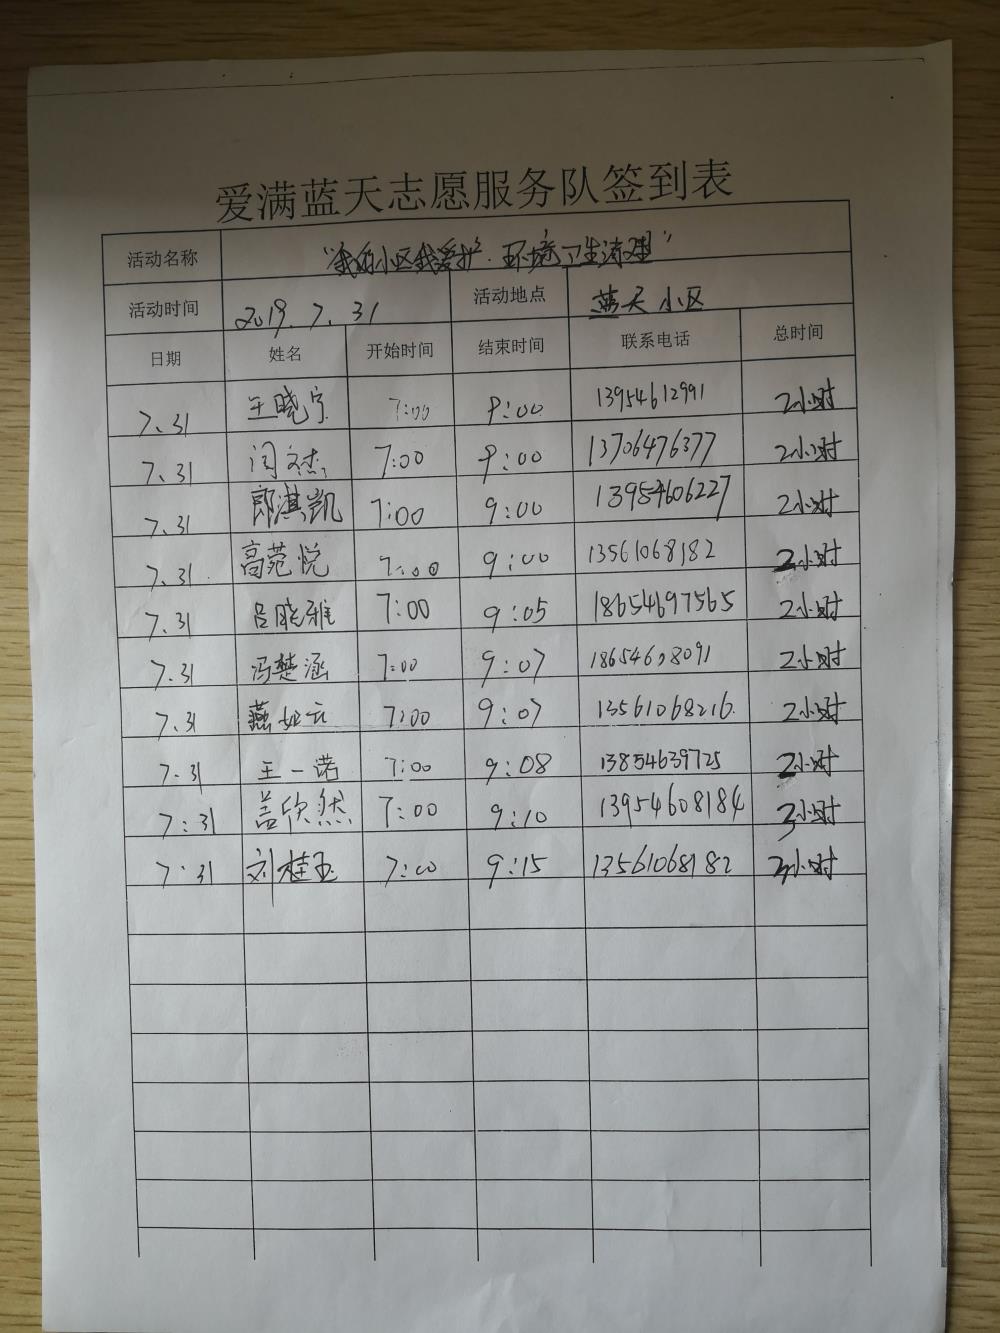 爱满蓝天志愿服务队签到表
活动名称 "我的小区我爱护·环境卫生清理"
活动时间 2019.7.31 活动地点 蓝天小区
日期 姓名 开始时间 结束时间 联系电话 总时间
7.31 王晓宁 7:00 9:00 13954612991 2小时
7.31 闫文杰 7:00 9:00 13706476377 2小时
7.31 郎淇凯 7:00 9:00 13954606227 2小时
7.31 高菀悦 7:00 9:00 13561068182 2小时
7.31 吕晓雅 7:00 9:05 18654697565 2小时
7.31 冯楚涵 7:00 9:07 18654608091 2小时
7.31 燕如云 7:00 9:07 13561068216 2小时
7.31 王一诺 7:00 9:08 13854639725 2小时
7:31 盖欣然 7:00 9:10 13954608184 小时
7:31 刘桂玉 7:00 9:15 13561068182 小时